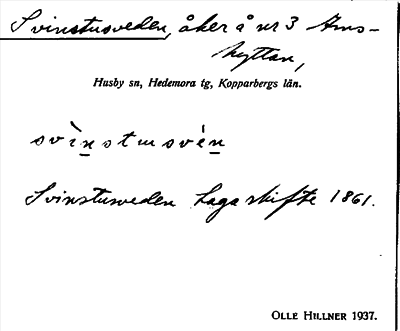 Svinstusveden, åker å nr 3 Ams-
hyttan,
Husby sn, Hedemora tg, Kopparbergs län.
svìnstusvén
Svinstusveden Laga skifte 1861.
OLLE HILLNER 1937.